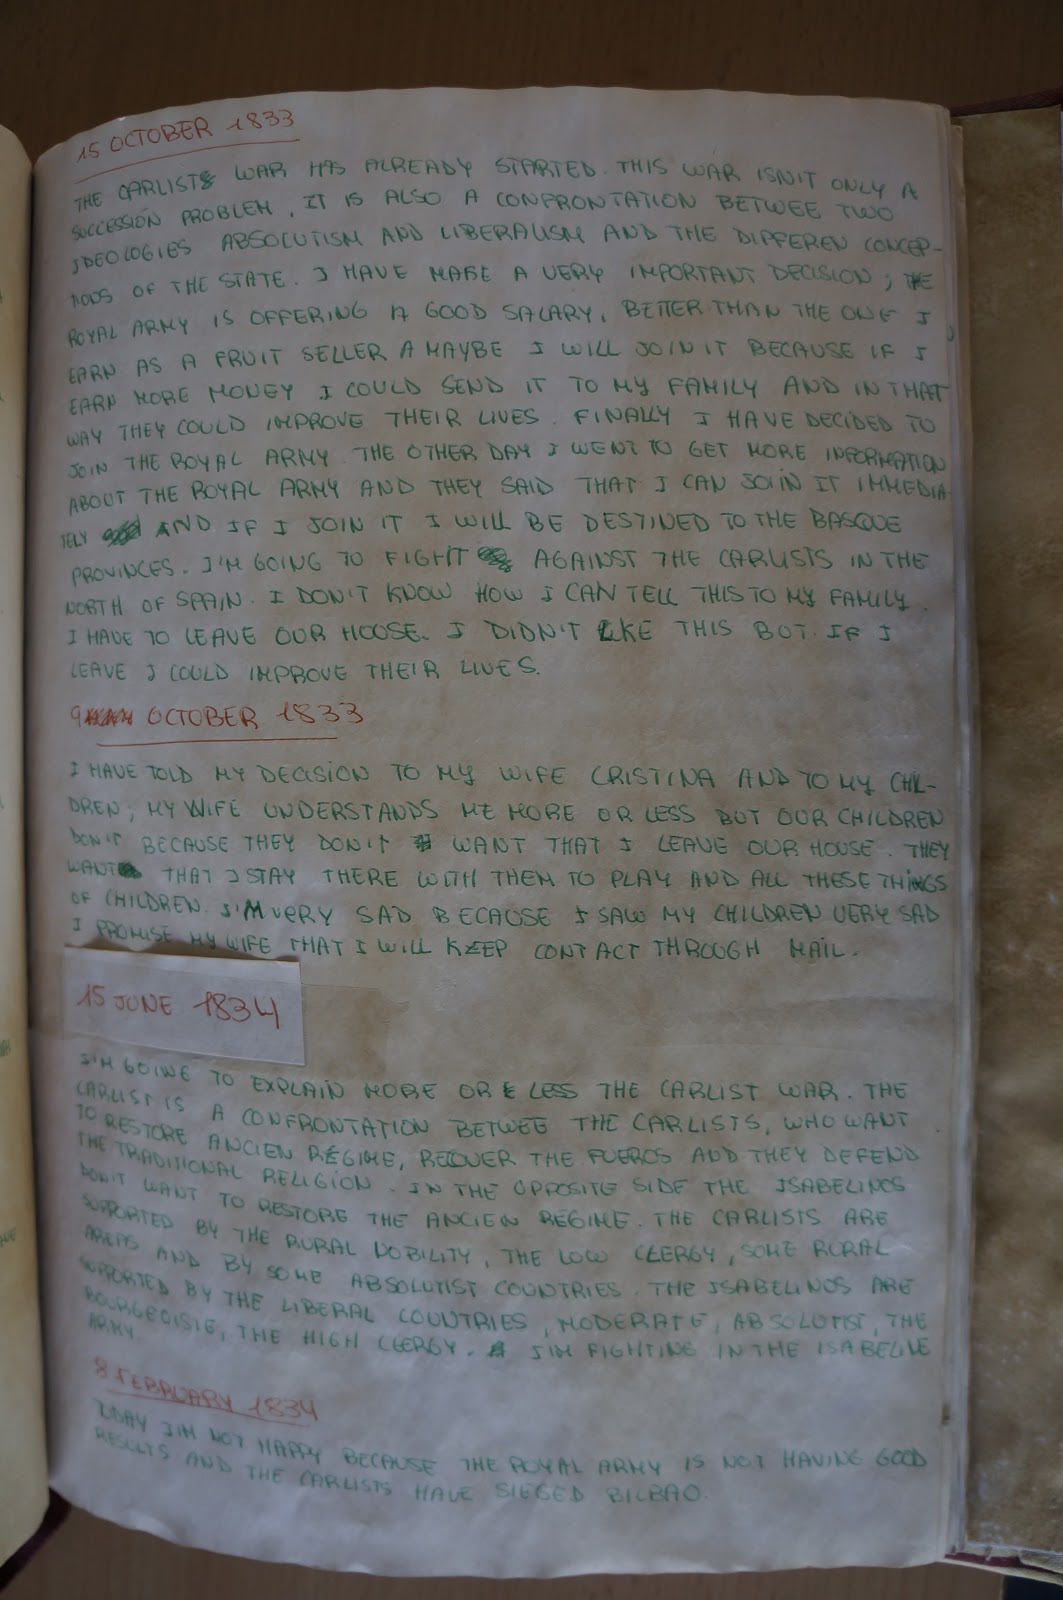 15 OCTOBER 1833
THE CARLISTS WAR HAS ALREADY STARTED. THIS WAR ISN'T ONLY A
SUCCESSION PROBLEM, IT IS ALSO A CONFRONTATION BETWEE TWO
IDEOLOGIES ABSOLUTISM AND LIBERALISM AND THE DIFFEREN CONCEP-
TIONS OF THE STATE. I HAVE MAKE A VERY IMPORTANT DECISION; THE
ROYAL ARMY IS OFFERING A GOOD SALARY, BETTER THAN THE ONE I
EARN AS A FRUIT SELLER A MAYBE I WILL JOIN IT BECAUSE IF I
EARN MORE MONEY I COULD SEND IT TO MY FAMILY AND IN THAT
WAY THEY COULD IMPROVE THEIR LIVES. FINALLY I HAVE DECIDED TO
JOIN THE ROYAL ARMY. THE OTHER DAY I WENT TO GET MORE INFORMATION
ABOUT THE ROYAL ARMY AND THEY SAID THAT I CAN JOIN IT IMMEDIA
TELY AND IF I JOIN IT I WILL BE DESTINED TO THE BASQUE
PROVINCES. I'M GOING TO FIGHT AGAINST THE CARLISTS IN THE
NORTH OF SPAIN. I DON'T KNOW HOW I CAN TELL THIS TO MY FAMILY.
I HAVE TO LEAVE OUR HOUSE. I DIDN'T LIKE THIS BUT IF I
LEAVE I COULD IMPROVE THEIR LIVES.
9 OCTOBER 1833
I HAVE TOLD MY DECISION TO MY WIFE CRISTINA AND TO MY CHIL-
DREN; MY WIFE UNDERSTANDS ME MORE OR LESS BUT OUR CHILDREN
DON'T BECAUSE THEY DON'T WANT THAT I LEAVE OUR HOUSE. THEY
WANT THAT I STAY THERE WITH THEM TO PLAY AND ALL THESE THINGS
OF CHILDREN. I'M VERY SAD BECAUSE I SAW MY CHILDREN VERY SAD
I PROMISE MY WIFE THAT I WILL KEEP CONTACT THROUGH MAIL.
15 JUNE 1834
I'M GOING TO EXPLAIN MORE OR LESS THE CARLIST WAR. THE
CARLIST IS A CONFRONTATION BETWEE THE CARLISTS, WHO WANT
TO RESTORE ANCIEN RÉGIME, RECOVER THE FUEROS AND THEY DEFEND
THE TRADITIONAL RELIGION. IN THE OPPOSITE SIDE THE ISABELINOS
DON'T WANT TO RESTORE THE ANCIEN RÉGIME. THE CARLISTS ARE
SUPPORTED BY THE RURAL NOBILITY, THE LOW CLERGY, SOME RURAL
AREAS AND BY SOME ABSOLUTIST COUNTRIES. THE ISABELINOS ARE
SUPPORTED BY THE LIBERAL COUNTRIES, MODERATE, ABSOLUTIST, THE
BOURGEOISIE, THE HIGH CLERGY. I'M FIGHTING IN THE ISABELINE
ARMY.
8 FEBRUARY 1834
TODAY I'M NOT HAPPY BECAUSE THE ROYAL ARMY IS NOT HAVING GOOD
RESULTS AND THE CARLISTS HAVE SIEGED BILBAO.